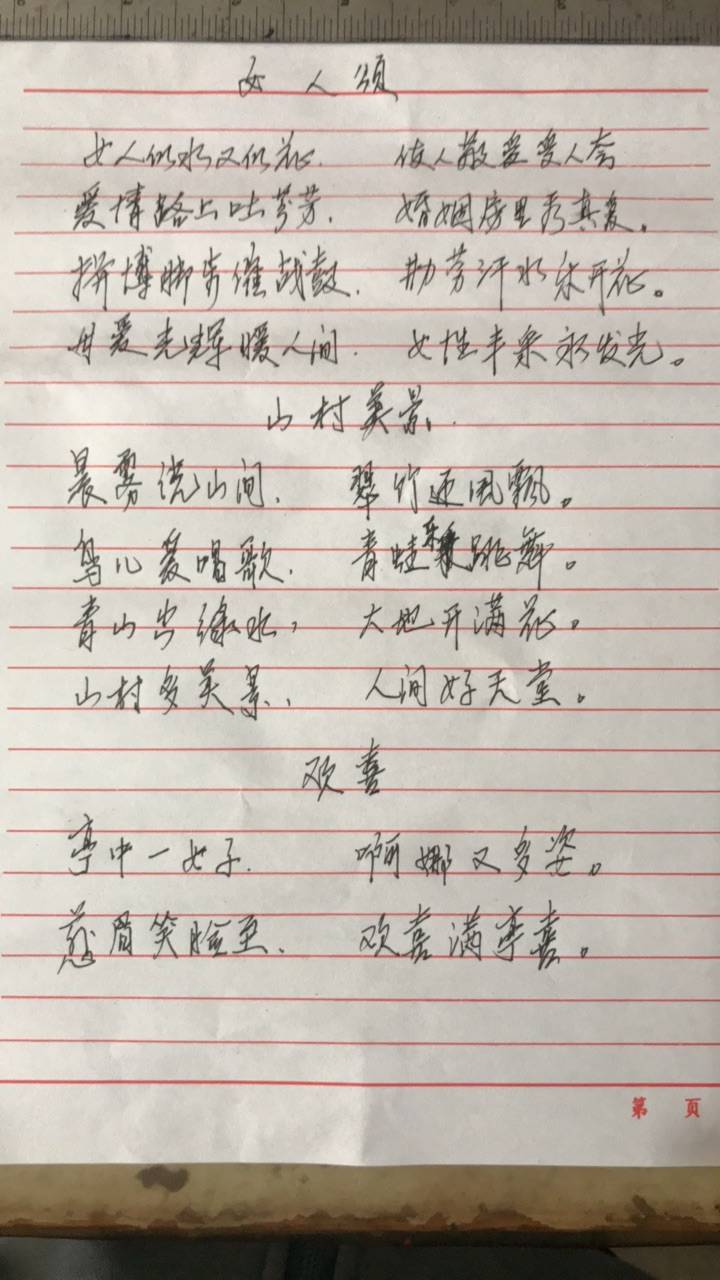 女人颂
女人似水又似花. 使人敬爱受人夸
爱情路上吐芬芳. 婚姻房里秀真爱。
拼博脚步催战鼓. 勤劳汗水乐开花。
母爱光辉暖人间. 女性丰采永发光。
山村美景.
晨雾绕山间. 翠竹迎风飘。
鸟儿爱唱歌. 青蛙来跳舞。
青山出绿水, 大地开满花。
山村多美景, 人间好天堂。
欢喜
亭中一女子. 啊娜又多姿。
慈眉笑脸至. 欢喜满亭喜。
第 页